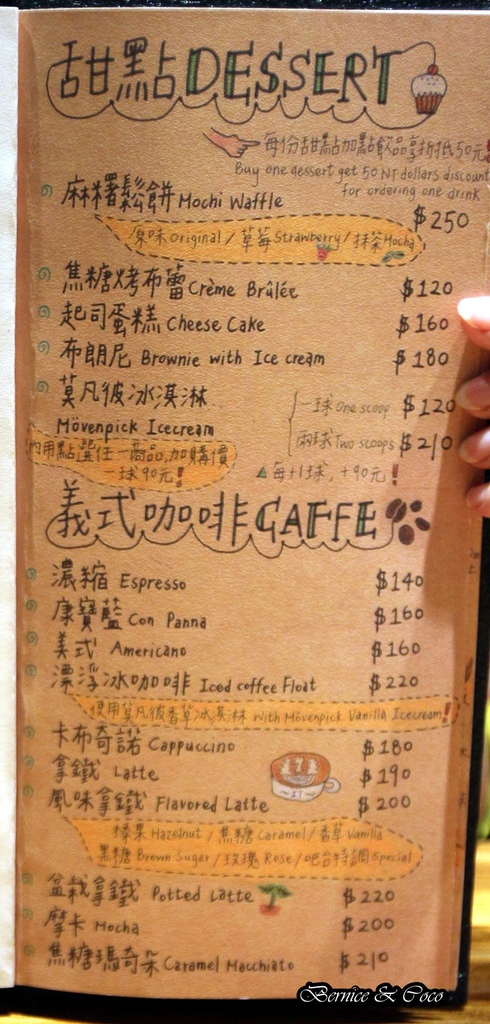 甜點 DESSERT
每份甜點加點飲品享折抵50元!
Buy one dessert get 50 NT dollars discount
for ordering one drink
麻糬鬆餅 Mochi Waffle $250
原味 Original / 草莓 Strawberry / 抹茶 Mocha
焦糖烤布蕾 Crème Brûlée $120
起司蛋糕 Cheese Cake $160
布朗尼 Brownie with Ice cream $180
莫凡彼冰淇淋
一球 One scoop $120
Mövenpick Icecream
兩球 Two scoops $210
內用點選任一商品,加購價
一球90元!
▲每+1球,+90元!
義式咖啡 CAFFE
濃縮 Espresso $140
康寶藍 Con Panna $160
美式 Americano $160
漂浮冰咖啡 Iced coffee Float $220
使用莫凡彼香草冰淇淋 With Mövenpick Vanilla Icecream!
卡布奇諾 Cappuccino $180
拿鐵 Latte $190
風味拿鐵 Flavored Latte $200
榛果 Hazelnut / 焦糖 Caramel / 香草 Vanilla
黑糖 Brown Sugar / 玫瑰 Rose / 吧台特調 Special
盆栽拿鐵 Potted Latte $220
摩卡 Mocha $200
焦糖瑪奇朵 Caramel Macchiato $210
Bernice & Coco